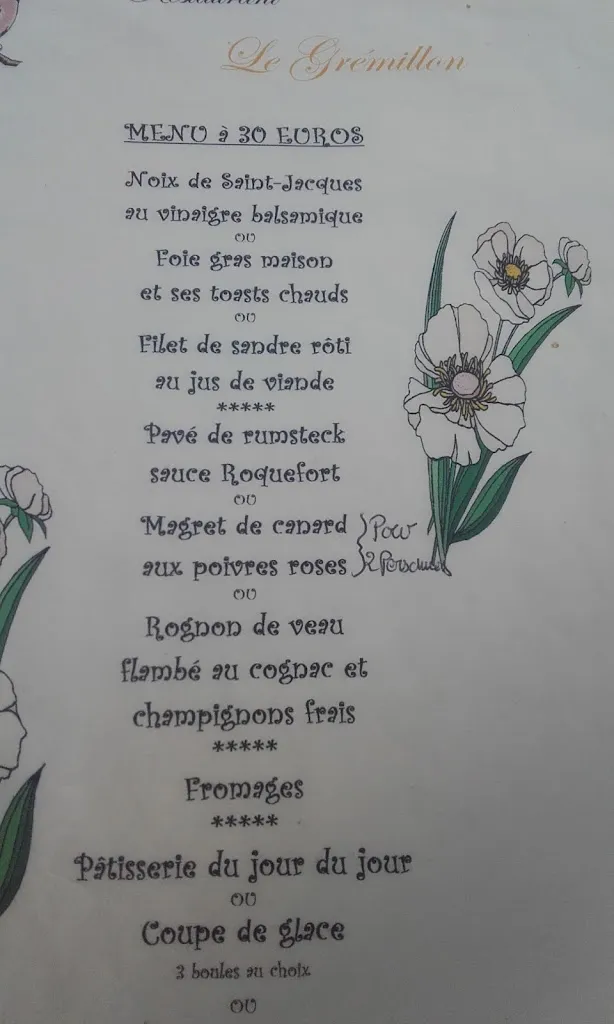 Restaurant
Le Grémillon
MENU à 30 EUROS
Noix de Saint-Jacques
au vinaigre balsamique
ou
Foie gras maison
et ses toasts chauds
ou
Filet de sandre rôti
au jus de viande
*****
Pavé de rumsteck
sauce Roquefort
ou
Magret de canard } Pour
aux poivres roses } 2 Personnes
ou
Rognon de veau
flambé au cognac et
champignons frais
*****
Fromages
*****
Pâtisserie du jour du jour
ou
Coupe de glace
3 boules au choix
ou